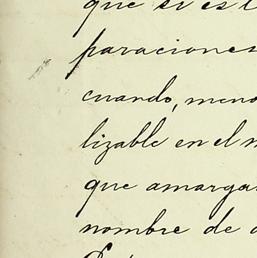 que si es
paraciones
cuando, meno
lizable en el
que amarga
nombre de